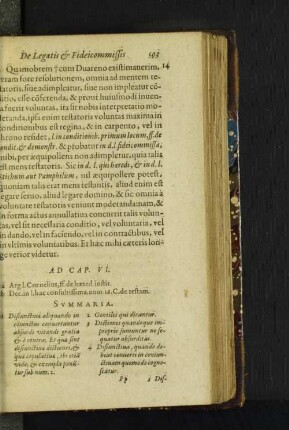 De Legatis & Fideicommissis 593
Quimobrem † cum Duareno existimauerim, 14
veram fore resolutionem, omnia ad mentem te-
statoris, siue adimpleatur, siue non impleatur cõ-
ditio, esse cõferenda, & prout huiusmodi inuen-
ta fuerit voluntas, ita sit nobis interpretatio mo-
deranda, ipsa enim testatoris voluntas maxima in
conditionibus est regina, & in carpento, vel in
throno residet, l. in conditionib. primum locum, ff. de
condit. & demonstr. & probatur in d. l. fideicommissa,
nibi, per æquipollens non adimpletur, quia talis
est mens testatoris. Sic in d. l. qui hæredi, & in d. l.
Stichum aut Pamphilum, nil æquipollere potest,
quoniam talia erat mens testantis, aliud enim est
legare seruo, aliud legare domino, & sic omnia à
voluntate testatoris veniunt moderanda: nam, &
in forma actus annullatiua concernit talis volun-
tas, vel sit necessaria conditio, vel voluntaria, vel
in dando, vel in faciendo, vel in contractibus, vel
in vltimis voluntatibus. Et hæc mihi cæteris lon-
ge verior videtur.
AD CAP. VI.
a Arg. l. Cornelius, ff. de hæred. instit.
b Dec. in l. hac consultissima. num. 12. C. de testam.
SVMMARIA.
1 Disiunctiua aliquando in
coniunctas conuertuntur
absurdi vitandi gratia
& è contra. Et qua sint
disiunctiua dictiones, &
qua copulatiua, ibi etiã
vide, & exempla poni-
tur sub num. 2.
2 Gentilis qui dicantur.
3 Dictiones quandoque im-
propriè sumuntur ne se-
quatur absurditas.
4 Disiunctiua, quando de-
beat conuerti in coniun-
ctinam quomodo cogno-
scatur.
Pp 1 Dis-